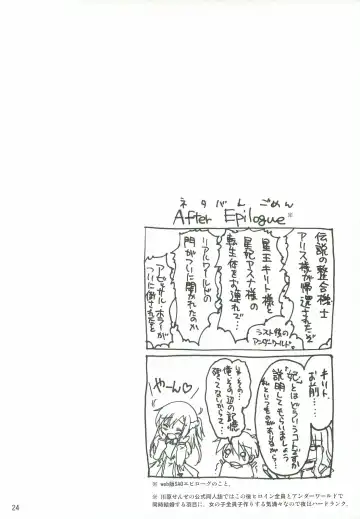 ネタバレごめん
After Epilogue※
伝説の整合騎士
アリス様が帰還されたぞ
星王キリト様と
星妃アスナ様の
転生体をお連れで…
リアルワールドの
門がついに開かれたのか
アビッサル・ホラーが
ついに倒されたと
ラスト後の
アンダーワールド。
キリト、
お前…
"妃"とはどういうコトですか
説明してもらいましょう
やーん♡
※ web版SAOエピローグのこと。
※ 川原せんせの公式同人誌ではこの後ヒロイン全員とアンダーワールドで
同時結婚する羽目に。女の子全員子作りする気満々なので夜はハードランク。
24